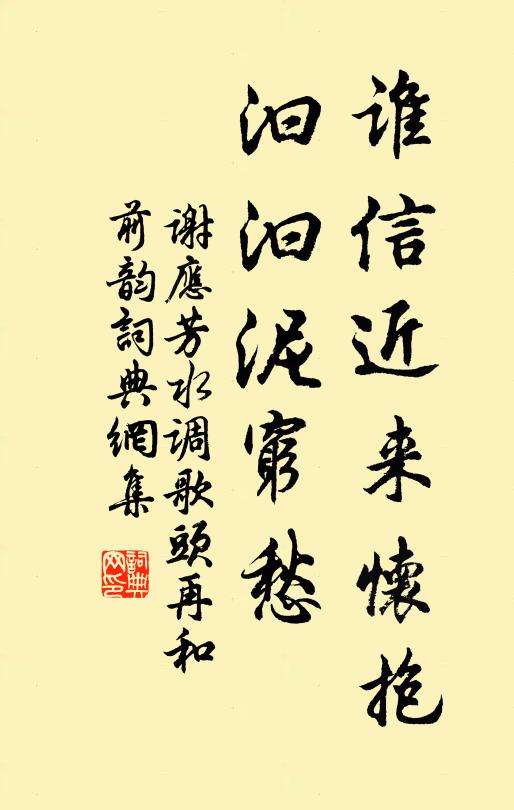 谁信近来懷抱
汩汩泥窮愁
谢應芳水调歌頭再和
前韵詞典網集
詞典
网印